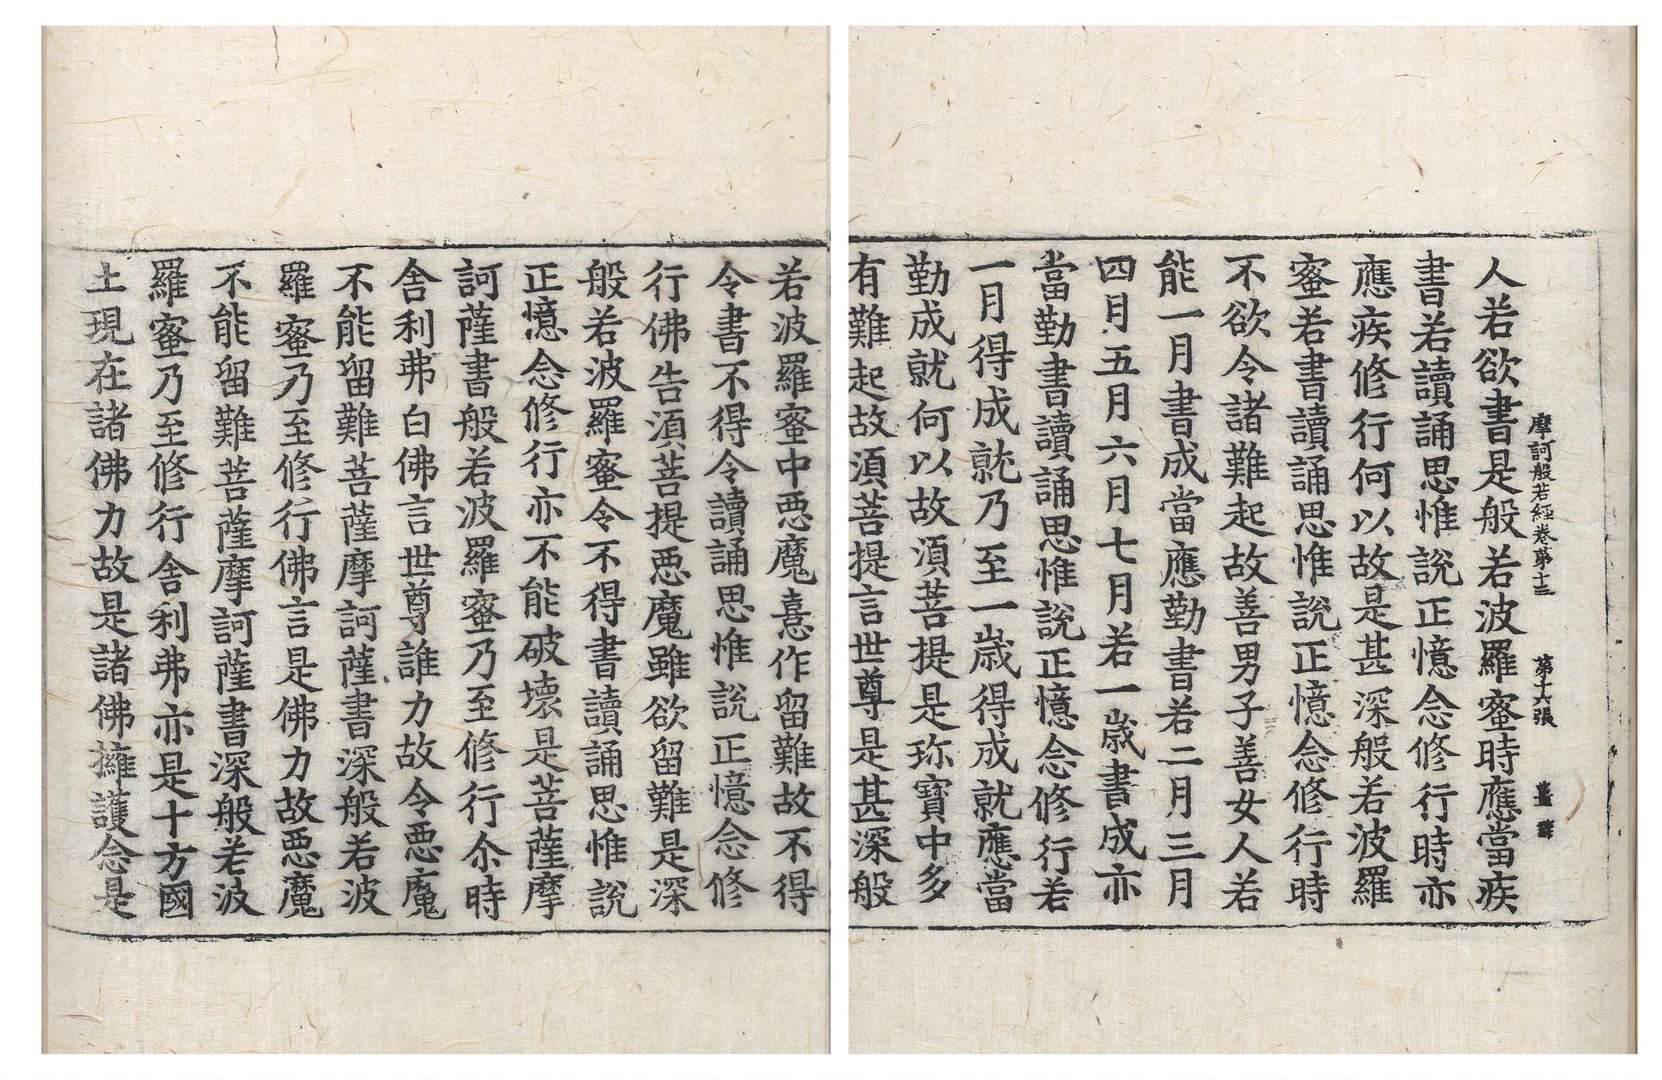 摩訶般若經卷第十三　第十六張　薑　
人若欲書是般若波羅蜜時應當疾
書若讀誦思惟說正憶念修行時亦
應疾修行何以故是甚深般若波羅
蜜若書讀誦思惟說正憶念修行時
不欲令諸難起故善男子善女人若
能一月書成當應勤書若二月三月
四月五月六月七月若一歲書成亦
當勤書讀誦思惟說正憶念修行若
一月得成就乃至一歲得成就應當
勤成就何以故須菩提是珎寶中多
有難起故須菩提言世尊是甚深般
若波羅蜜中惡魔憙作留難故不得
令書不得令讀誦思惟說正憶念修
行佛告須菩提惡魔雖欲留難是深
般若波羅蜜令不得書讀誦思惟說
正憶念修行亦不能破壞是菩薩摩
訶薩書般若波羅蜜乃至修行尒時
舍利弗白佛言世尊誰力故令惡魔
不能留難菩薩摩訶薩書深般若波
羅蜜乃至修行佛言是佛力故惡魔
不能留難菩薩摩訶薩書深般若波
羅蜜乃至修行舍利弗亦是十方國
土現在諸佛力故是諸佛擁護念是